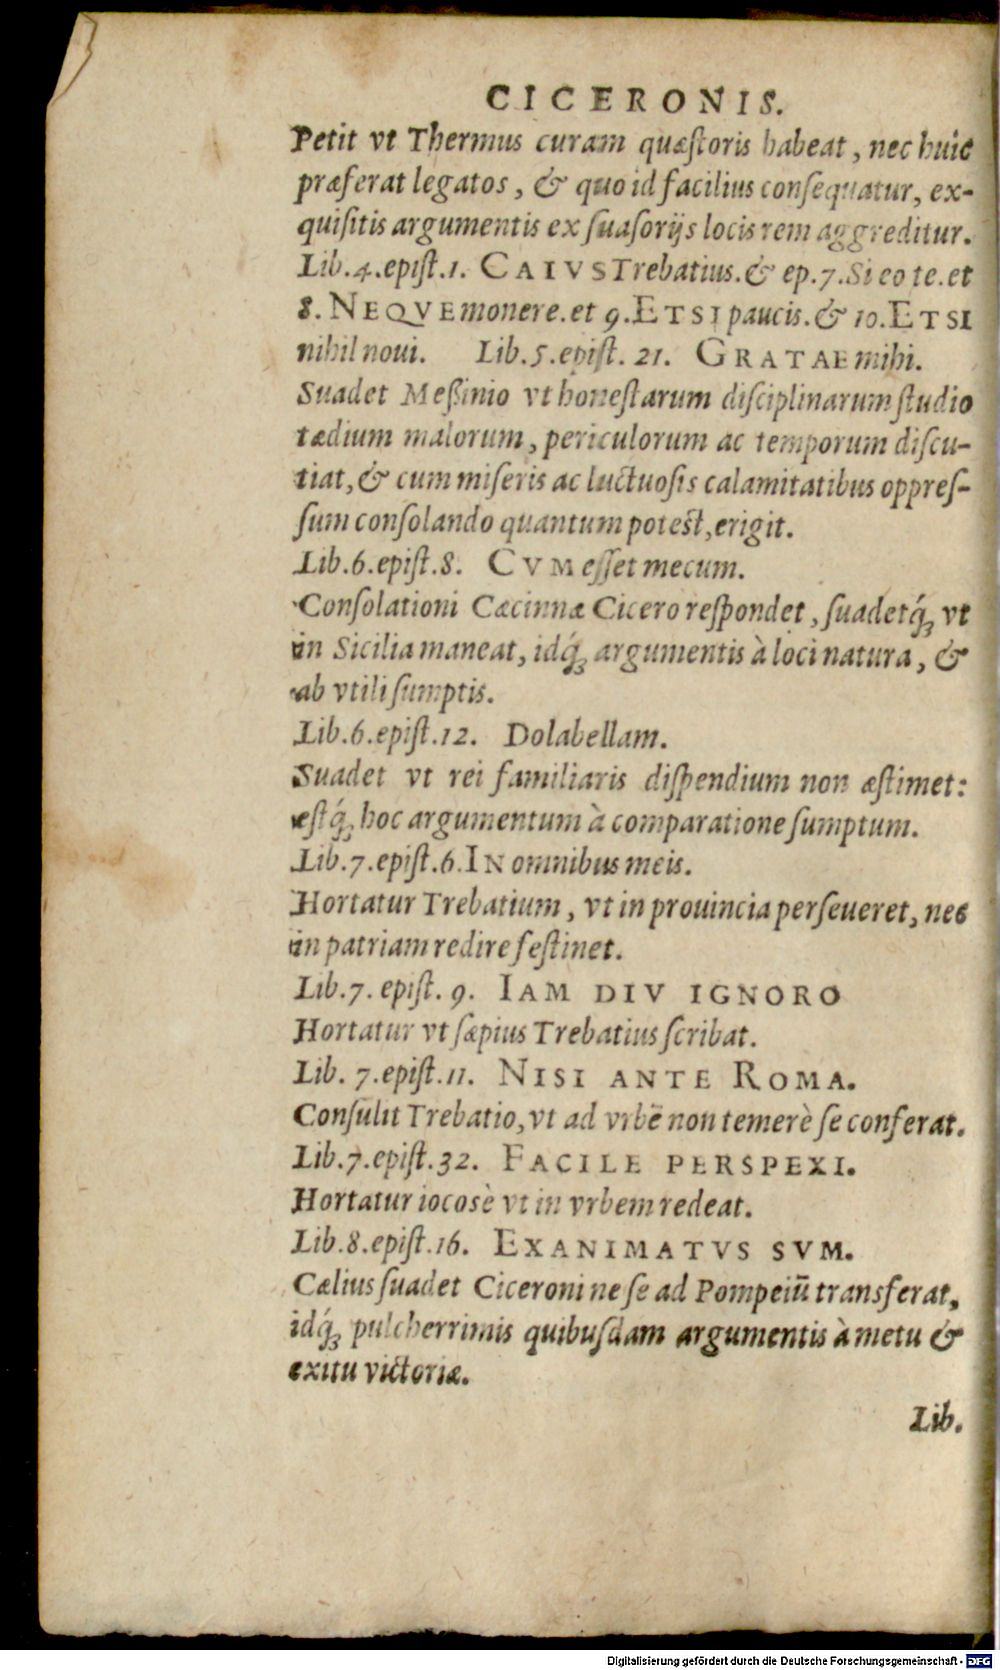 CICERONIS.
Petit vt Thermus curam quæſtoris habeat, nec huic
præferat legatos, & quo id facilius conſequatur, ex-
quiſitis argumentis ex ſuaſorijs locis rem aggreditur.
Lib.4.epiſt.1. CAIVS Trebatius.& ep.7.Si eo te.et
8. NEQVE monere.et 9.ETSI paucis.& 10.ETSI
nihil noui. Lib.5.epiſt. 21. GRATAE mihi.
Suadet Meßinio vt honeſtarum diſciplinarum ſtudio
tædium malorum, periculorum ac temporum diſcu-
tiat,& cum miſeris ac luctuoſis calamitatibus oppreſ-
ſum conſolando quantum poteſt,erigit.
Lib.6.epiſt.8. CVM eſſet mecum.
Conſolationi Cæcinnæ Cicero reſpondet, ſuadetq́ꝫ vt
in Sicilia maneat, idq́ꝫ argumentis à loci natura, &
ab vtili ſumptis.
Lib.6.epiſt.12. Dolabellam.
Suadet vt rei familiaris diſpendium non æſtimet:
eſtq́ꝫ hoc argumentum à comparatione ſumptum.
Lib.7.epiſt.6.IN omnibus meis.
Hortatur Trebatium, vt in prouincia perſeueret, nec
in patriam redire feſtinet.
Lib.7. epiſt. 9. IAM DIV IGNORO
Hortatur vt ſæpius Trebatius ſcribat.
Lib. 7.epiſt.11. NISI ANTE ROMA.
Conſulit Trebatio, vt ad vrbē non temerè ſe conferat.
Lib.7.epiſt.32. FACILE PERSPEXI.
Hortatur iocosè vt in vrbem redeat.
Lib.8.epiſt.16. EXANIMATVS SVM.
Cælius ſuadet Ciceroni ne ſe ad Pompeiū transferat,
idq́ꝫ pulcherrimis quibuſdam argumentis à metu &
exitu victoriæ.
Lib.
Digitalisierung gefördert durch die Deutsche Forschungsgemeinschaft - DFG